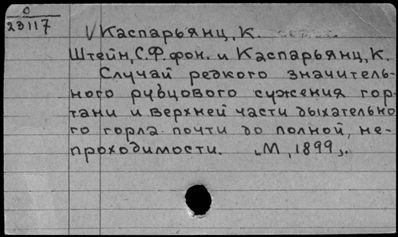 0
23117
Каспарьянц, К.
Штейн, С.Ф. фон. и Каспарьянц, К.
Случай редкого значитель-
ного рубцового сужения гор-
тани и верхней части дыхательно
го горла почти до полной, не-
проходимости. "М, 1899".